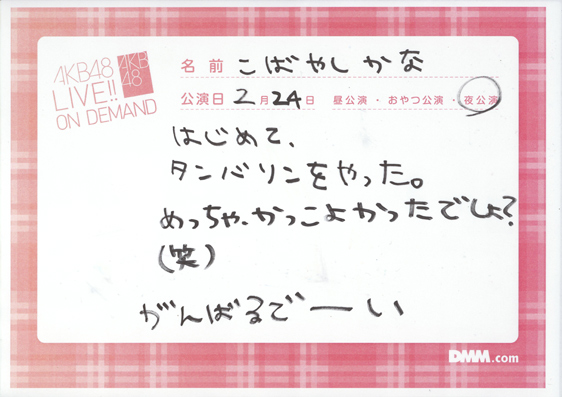 AKB48
LIVE!!
ON DEMAND
AKB
48
名前 こばやしかな
公演日 2月24日 昼公演・おやつ公演・夜公演
はじめて、
タンバリンをやった。
めっちゃ、かっこよかったでしょ?
(笑)
がんばるでーい
DMM.com